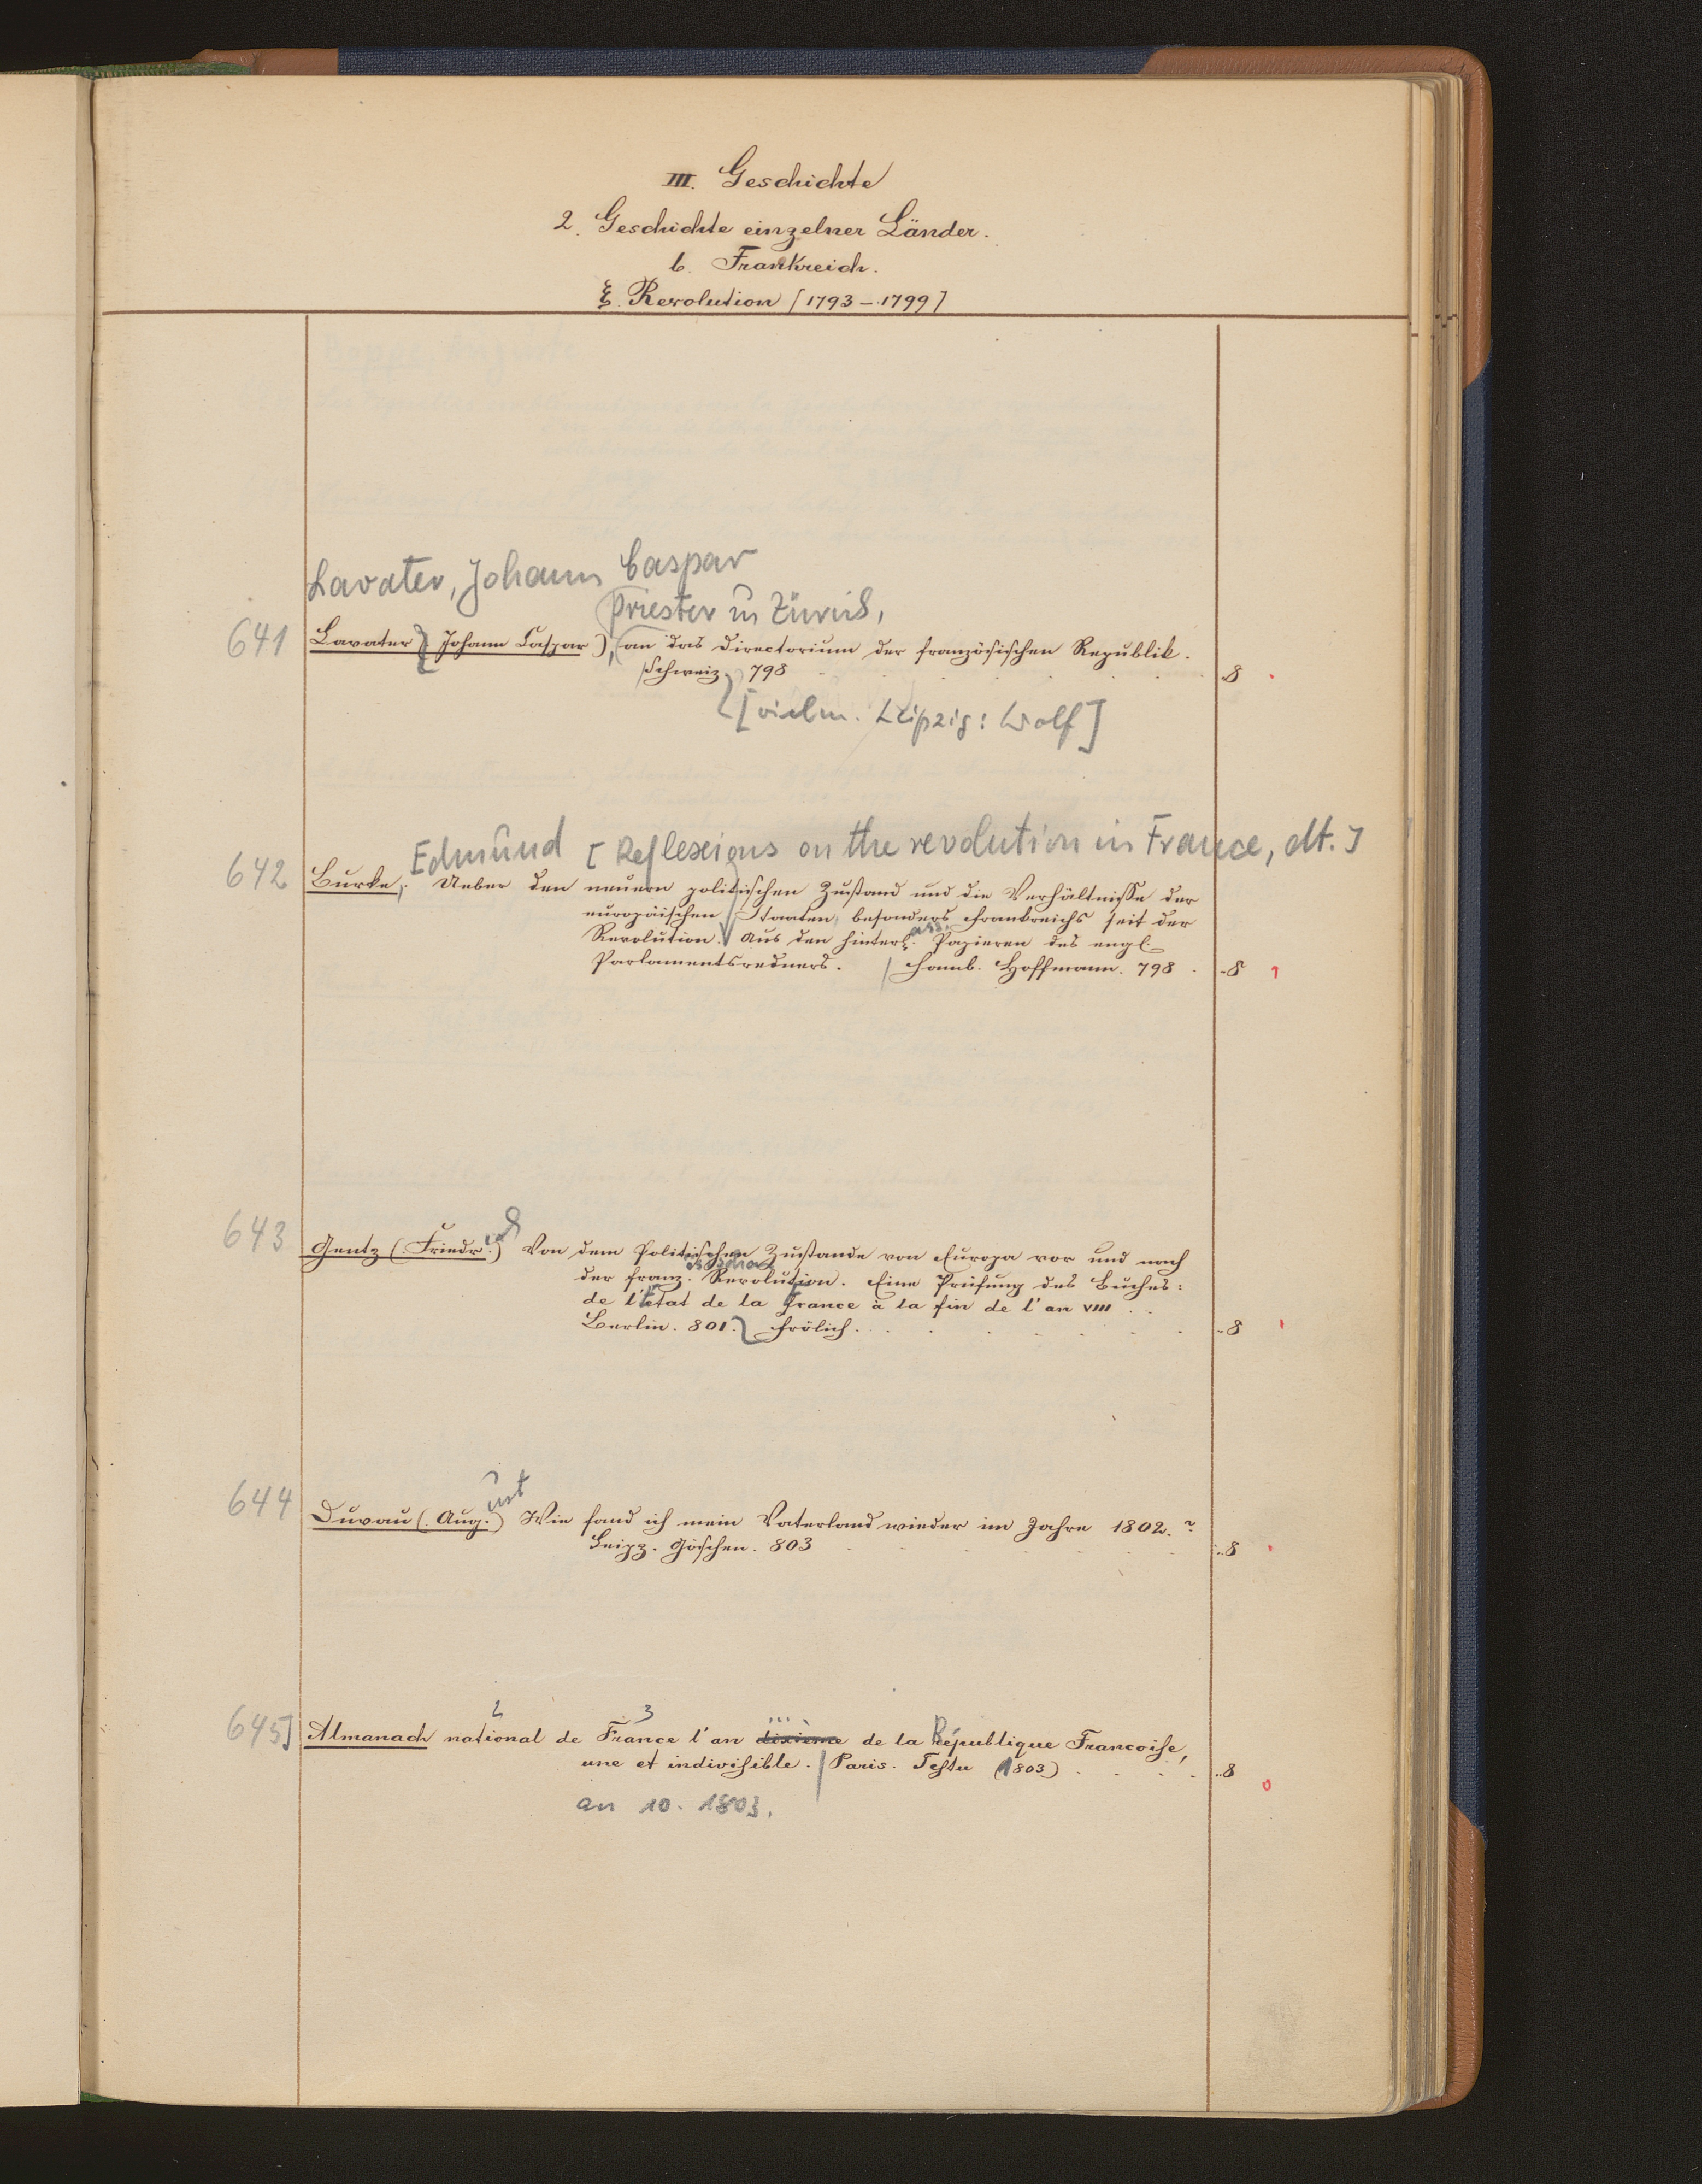 III. Geschichte
2. Geschichte einzelner Länder.
b. Frankreich.
ξ. Revolution [1793-1799]
Lavater, Johann Caspar
Priester in Zürich,
641 Lavater (Johann Caspar), an das Directorium der französischen Republik.
Schweiz 798 8
[vielm. Leipzig: Wolf]
Edmund [Reflexions on the revolution in France, dt.]
642 Burke, Ueber den neuern politischen Zustand und die Verhältnisse der
europäischen Staaten, besonders Frankreichs seit der
Revolution. Aus den hinterl. Papieren des engl.
Parlamentsredners. Hamb. Hoffmann. 798 8
643 Gentz (Friedrich) Von dem Politischen Zustande von Europa vor und nach
der franz. Revolution. Eine Prüfung des Buches:
de l'État de la France à la fin de l'an VIII
Berlin. 801. Frölich. 8
644 Duvau (August) Wie fand ich mein Vaterland wieder im Jahre 1802.?
Leipz. Göschen. 803 8
2 3
645] Almanach national de France l'an dixième de la République Francoise,
une et indivisible. Paris. Testu (1803) 8
an 10. 1803.